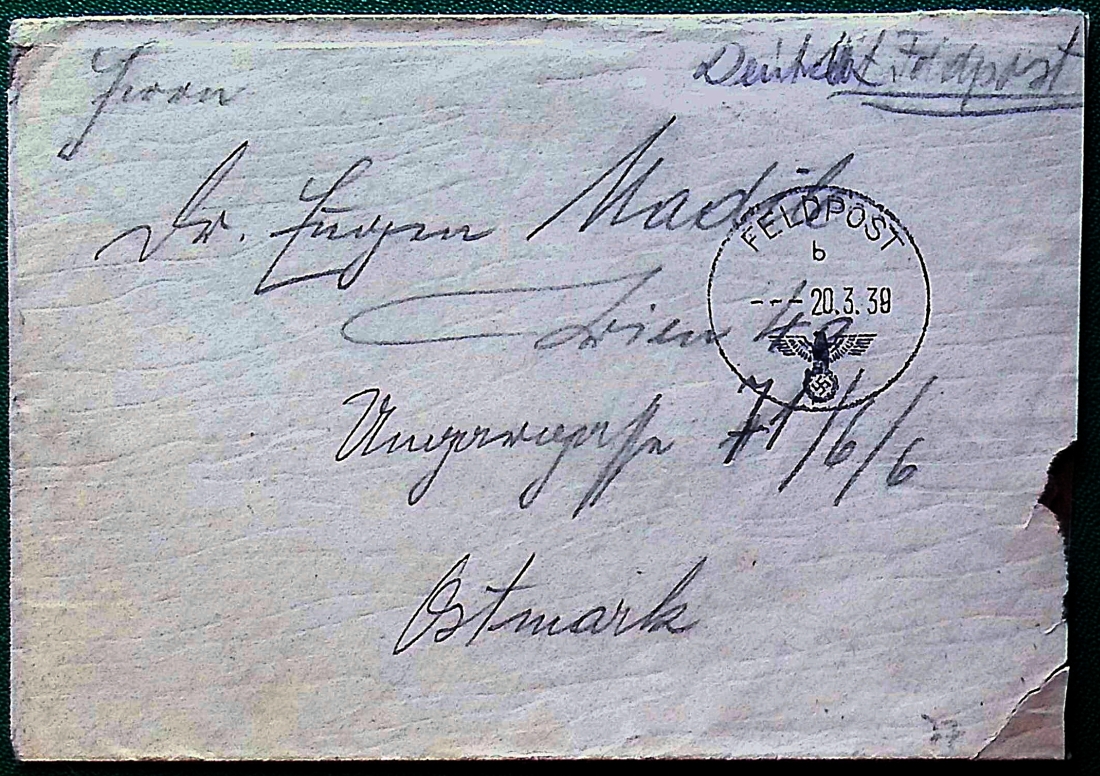 Deutsche Feldpost
Herrn
Dr. Eugen
FELDPOST
b
--- 20.3.39
Wien
Ungargasse 71/6/6
Ostmark